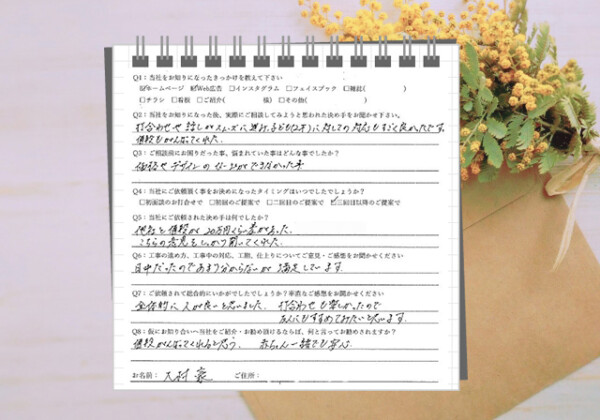 Q1：当社をお知りになったきっかけを教えて下さい
☑ホームページ ☑Web広告 □インスタグラム □フェイスブック □雑誌( )
□チラシ □看板 □ご紹介( 様) □その他( )
Q2：当社をお知りになった後、実際にご相談してみようと思われた決め手をお聞かせ下さい。
打合わせや話しがスムーズに進み、子ども(2才)に対しての対応もすごく良かったです。
価格もがんばってくれた。
Q3：ご相談前にお困りだった事、悩まれていた事はどんな事でしたか？
価格やデザインの
Q4：当社にご依頼頂く事をお決めになったタイミングはいつでしたでしょうか？
□初面談のお打合せで □初回のご提案で □二回目のご提案で ☑三回目以降のご提案で
Q5：当社にご依頼された決め手は何でしたか？
他社と価格が20万円くらい差があった。
こちらの意見をしっかり聞いてくれた。
Q6：工事の進め方、工事中の対応、工期、仕上りについてご意見・ご感想をお聞かせください
日中だったのであまり分からないが 満足しています。
Q7：ご依頼されて総合的にいかがでしたでしょうか？率直なご感想をお聞かせください
全体的に人が良いと思いました。 打合わせも楽しかったので
友人にもすすめてみたいと思います。
Q8：仮にお知り合いへ当社をご紹介・お勧め頂けるならば、何と言ってお勧めされますか？
価格がんばってくれると思う。 赤ちゃん一緒でも安心
お名前： 大村 家 ご住所：